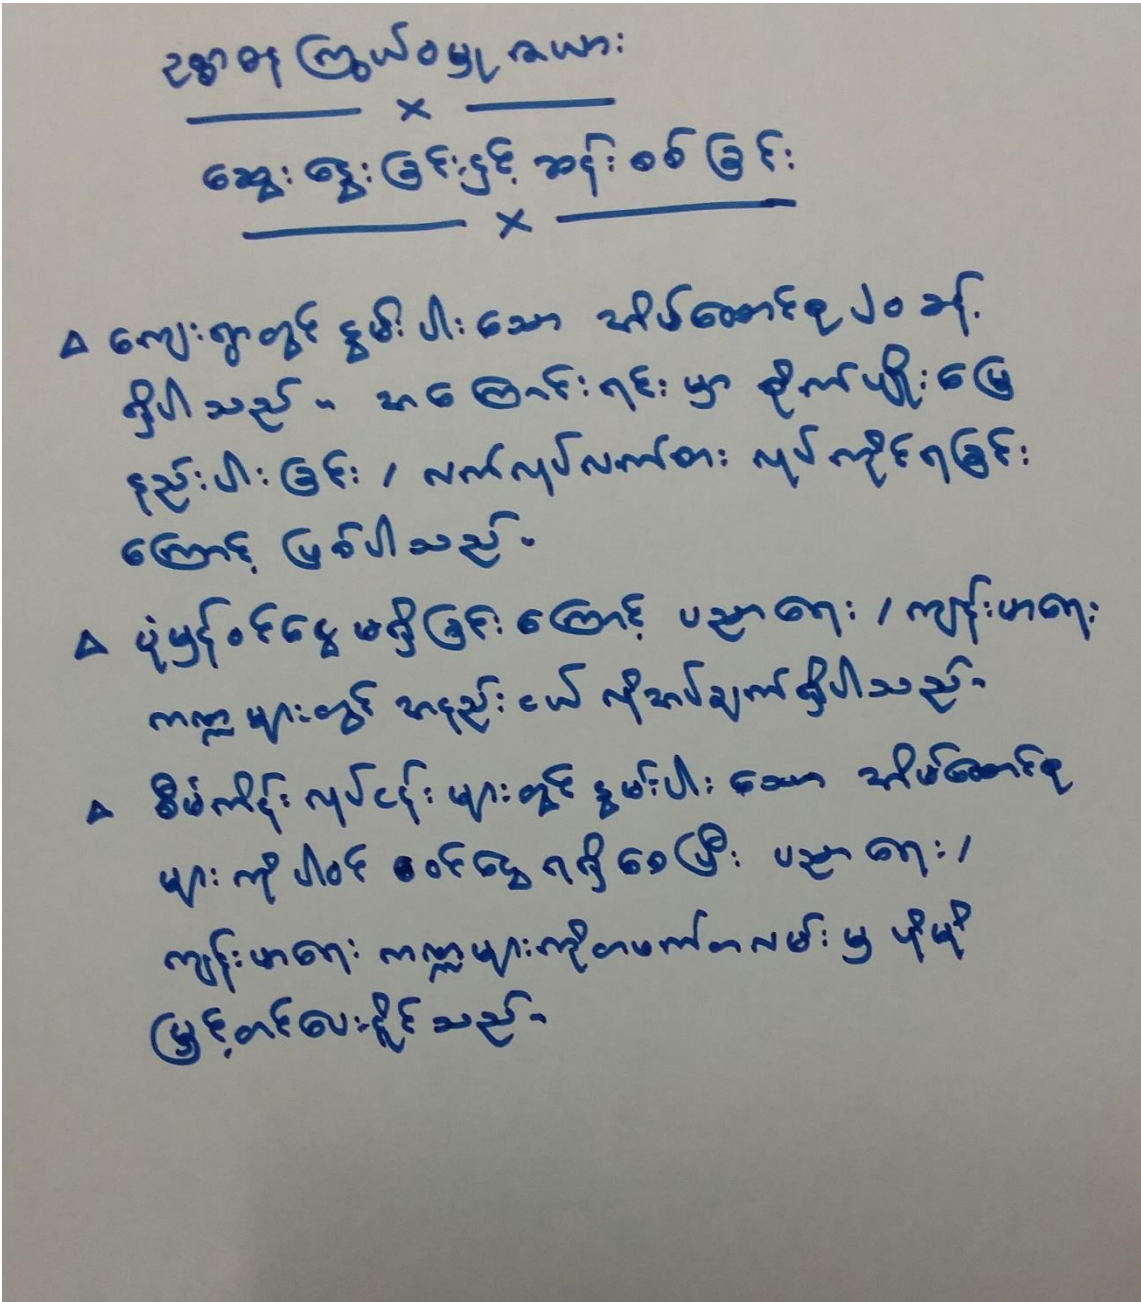 ဥစ္စာဓန ကြွယ်ဝမှု ဇယား
ဆွေးနွေးခြင်းနှင့် ဆန်းစစ်ခြင်း
ကျေးရွာတွင် နွမ်းပါးသော အိမ်ထောင်စု ၂၀ ခန့်
ရှိပါသည်။ အကြောင်းရင်းမှာ စိုက်ပျိုးမြေ
နည်းပါးခြင်း / လက်လုပ်လက်စား လုပ်ကိုင်ရခြင်း
ကြောင့် ဖြစ်ပါသည်။
ပုံမှန်ဝင်ငွေ မရှိခြင်းကြောင့် ပညာရေး / ကျန်းမာရေး
ကဏ္ဍများတွင် အနည်းငယ် လိုအပ်ချက်ရှိပါသည်။
စီမံကိန်း လုပ်ငန်းများတွင် နွမ်းပါးသော အိမ်ထောင်စု
များကို ပါဝင် ဝင်ငွေရရှိစေပြီး ပညာရေး /
ကျန်းမာရေး ကဏ္ဍများကိုတဖက်တလမ်းမှ ပိုမို
မြှင့်တင်ပေးနိုင်သည်။